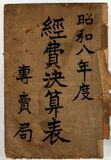 昭和八年度
經費決算表
專賣局